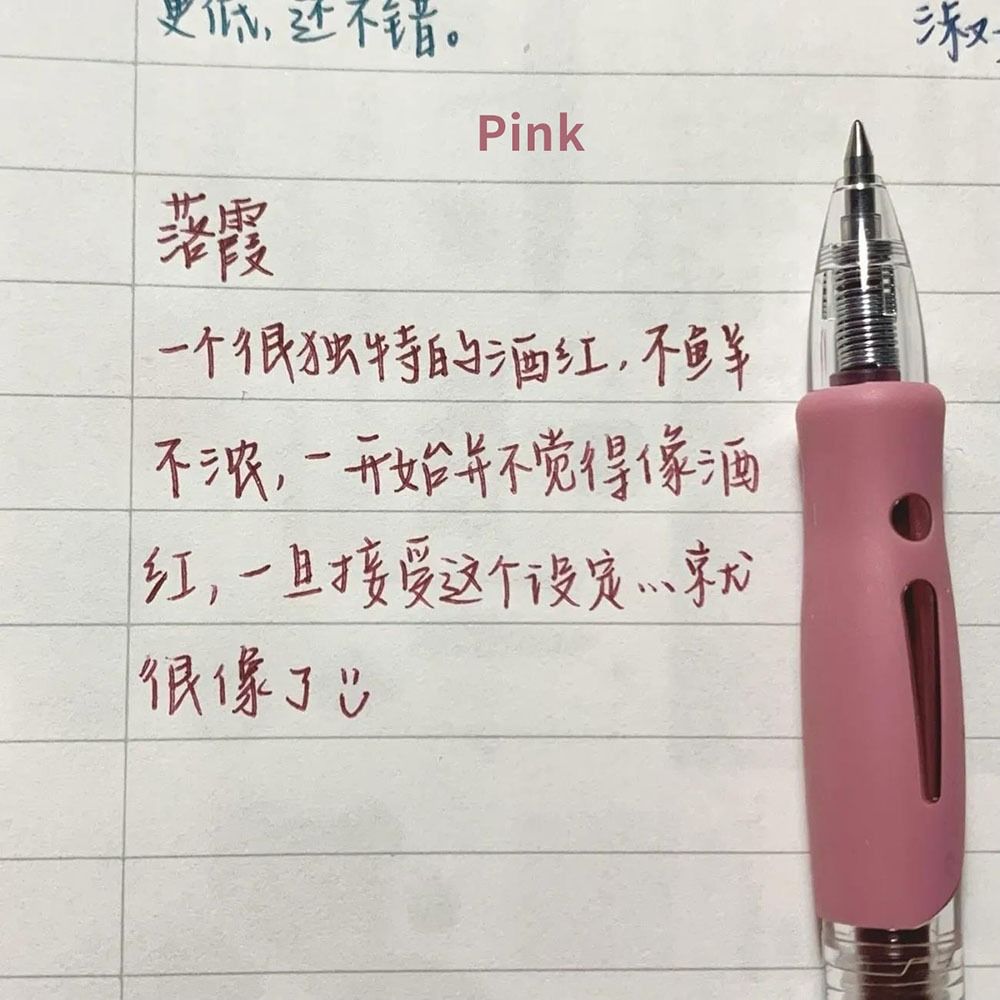 更低,还不错。
淑
Pink
落霞
一个很独特的酒红,不鲜
不浓,一开始并不觉得像酒
红,一旦接受这个设定…就
很像了